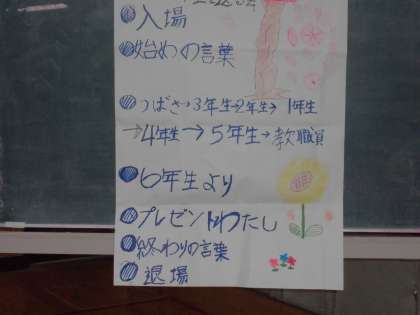 ●入場
●始めの言葉
●つばさ→3年生→2年生→1年生
→4年生→5年生→教職員
●6年生より
●プレゼントわたし
●終わりの言葉
●退場